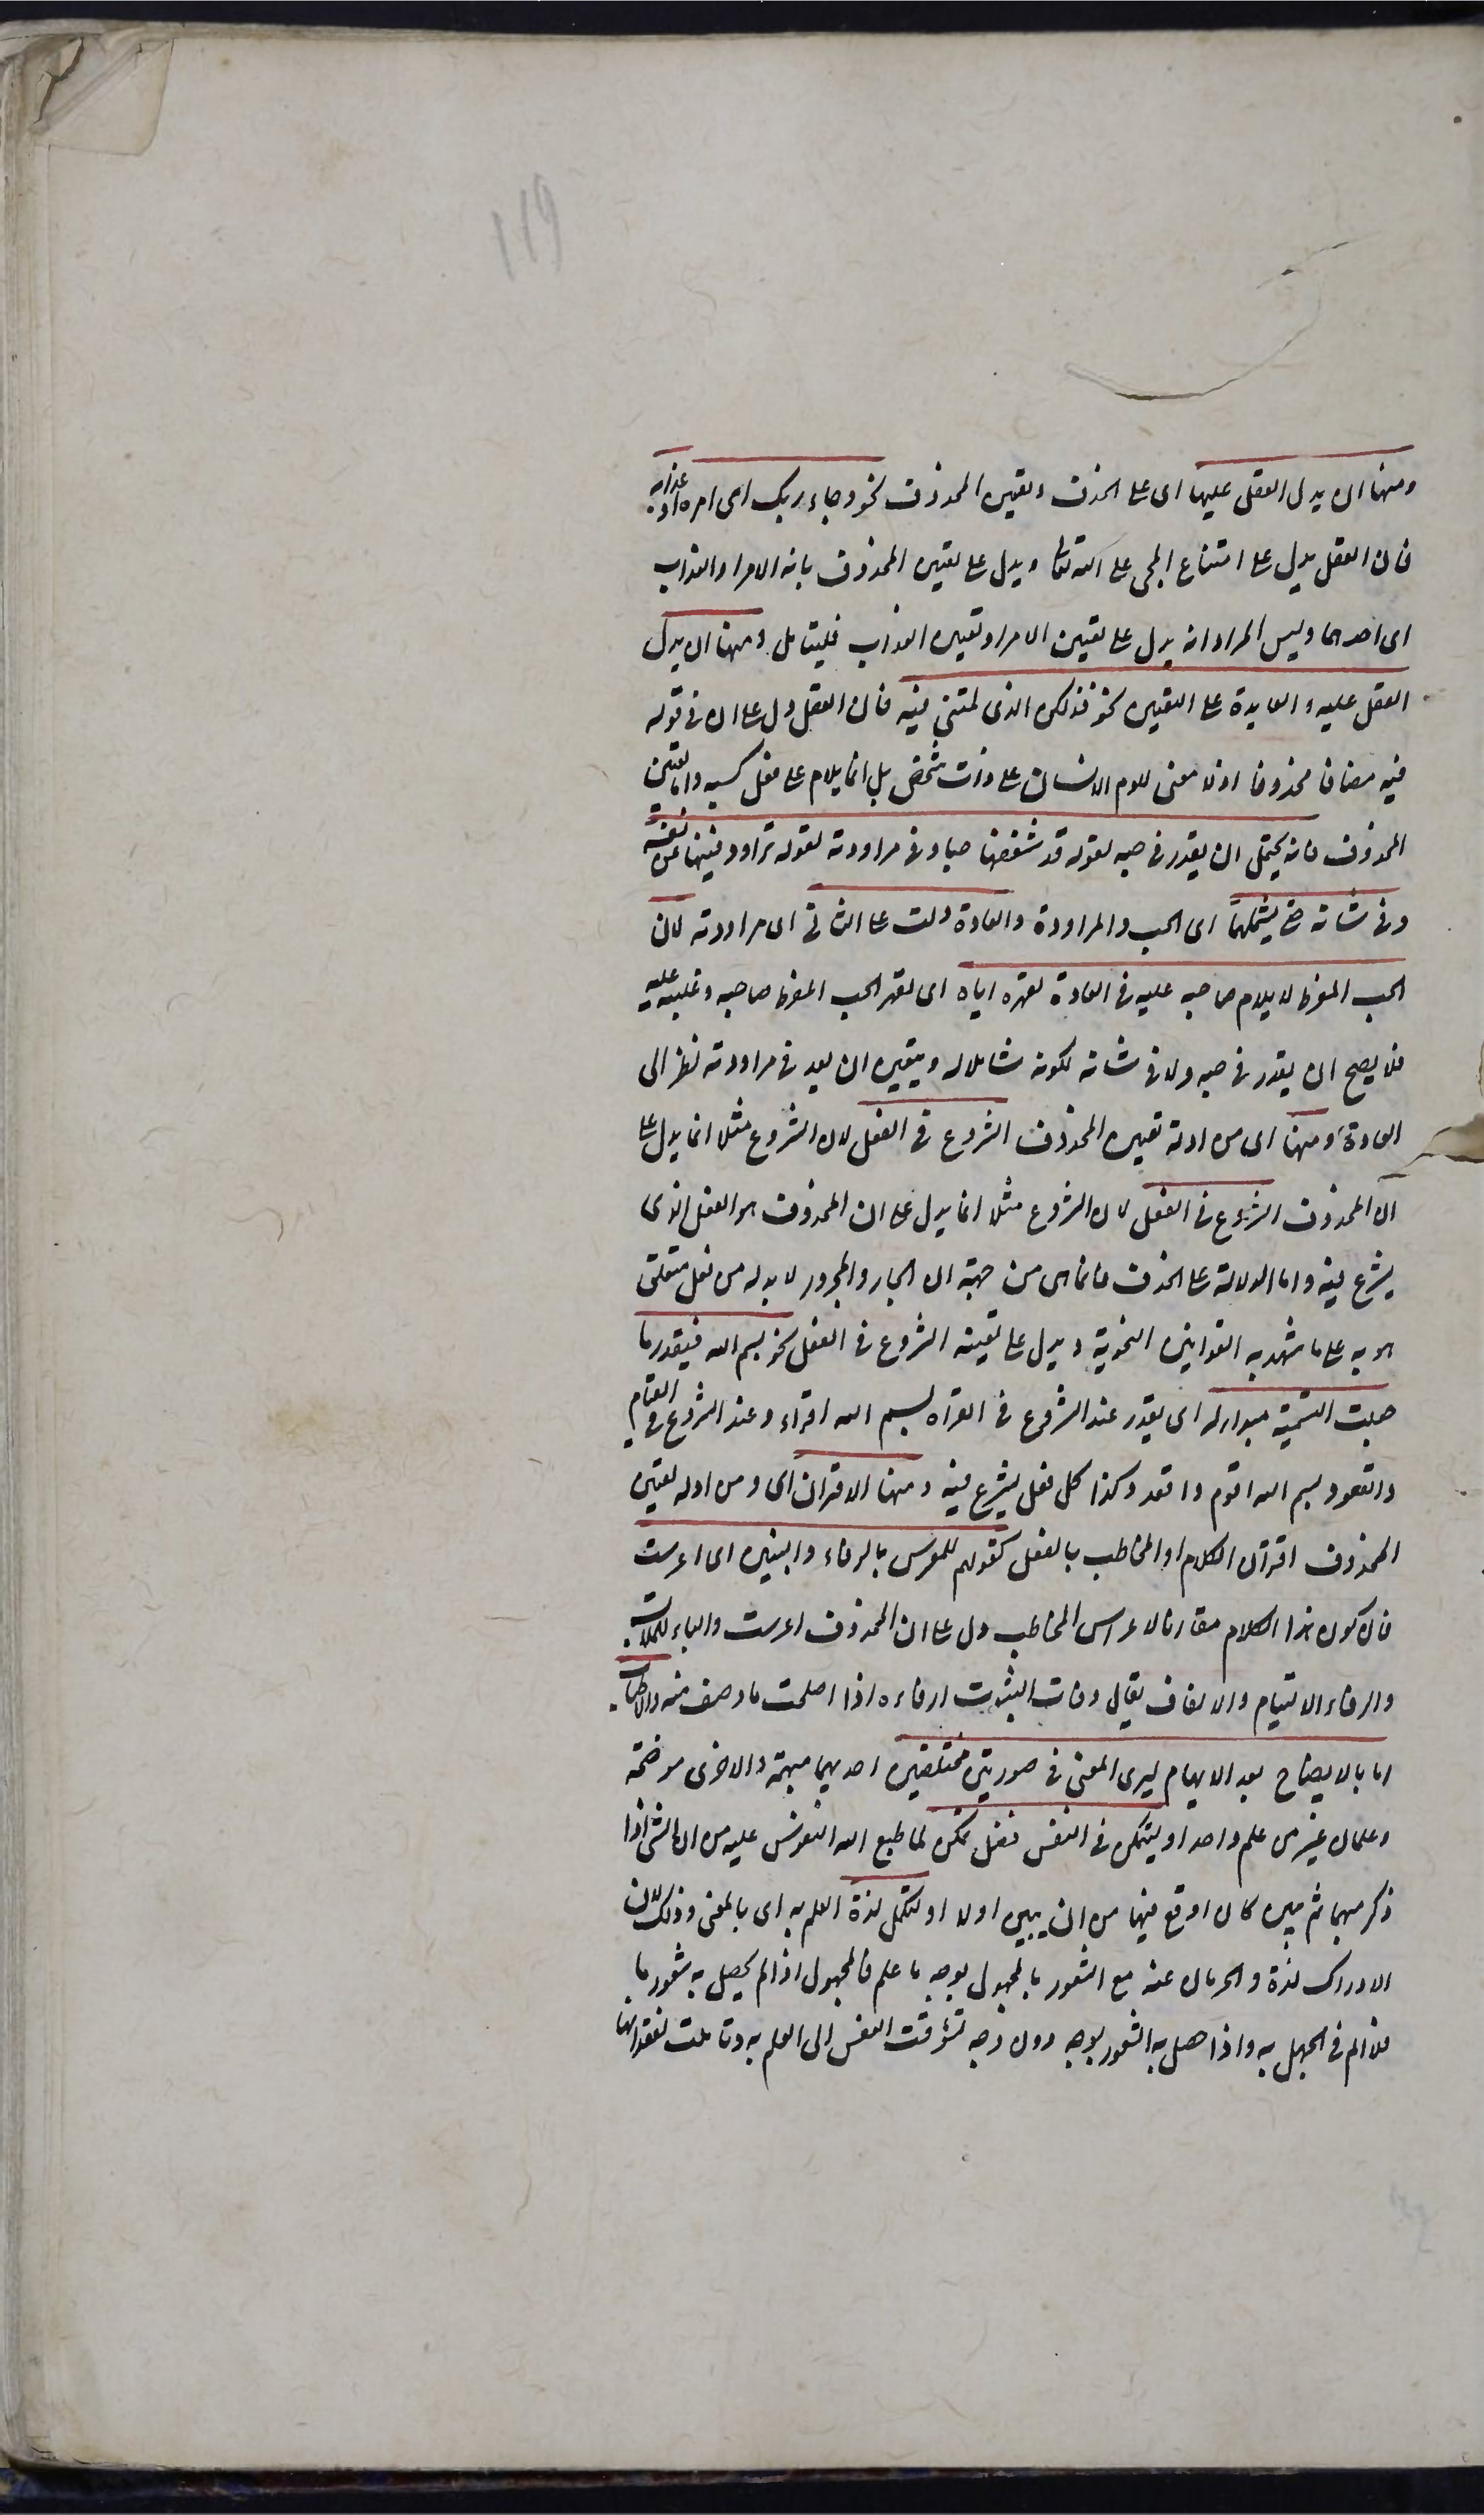 ١١٩
ومنها ان يدل العقل عليها اى على الحذف وتعيين المحذوف نحو وجاء ربك اى امره او عذابه
فان العقل يدل على امتناع المجى على الله تعالى ويدل على تعيين المحذوف بانه الامر او العذاب
اى احدهما وليس المراد انه يدل على تعيين الامر او تعيين العذاب فليتامل ومنها ان يدل
العقل عليه والعادة على التعيين نحو فذلكن الذى لمتننى فيه فان العقل دل على ان فى قوله
فيه مضافا محذوفا اذ لا معنى للوم الانسان على ذات شخص بل انما يلام على فعل كسبه واما تعيين
المحذوف فانه يحتمل ان يقدر فى حبه لقوله قد شغفها حبا وفى مراودته لقوله تراود فتيها عن نفسه
وفى شانه حتى يشملهما اى الحب والمراودة والعادة دلت على الثانى اى مراودته لان
الحب المفرط لا يلام صاحبه عليه فى العادة لقهره اياه اى لقهر الحب المفرط صاحبه وغلبته عليه
فلا يصح ان يقدر فى حبه ولا فى شانه لكونه شاملا له ويتعين ان يعد فى مراودته نظرا الى
العادة ومنها اى من ادلة تعيين المحذوف الشروع فى الفعل لان الشروع مثلا انما يدل على
ان المحذوف الشروع فى الفعل لان الشروع مثلا انما يدل على ان المحذوف هو الفعل الذى
يشرع فيه واما الدلالة على الحذف فانما هى من جهة ان الجار والمجرور لا بد له من فعل متعلق
هو به على ما شهد به القوانين النحوية ويدل على تعيينه الشروع فى الفعل نحو بسم الله فيقدر ما
جعلت التسمية مبدأ له اى يقدر عند الشروع فى القراة بسم الله اقراء وعند الشروع فى القيام
والقعود بسم الله اقوم واقعد وكذا كل فعل يشرع فيه ومنها الاقتران اى ومن ادلة تعيين
المحذوف اقتران الكلام او المخاطب بالفعل كقولهم للمعرس بالرفاء والبنين اى اعرست
فان كون هذا الكلام مقارنا لاعراس المخاطب دل على ان المحذوف اعرست والباء للملابسة
والرفاء الالتيام والاتفاق يقال رفات الثوب ارفاءه اذا اصلحت ما وهى منه والاطناب
اما بالايضاح بعد الابهام ليرى المعنى فى صورتين مختلفتين احديهما مبهمة والاخرى موضحة
وعلمان خير من علم واحد او ليتمكن فى النفس فضل تمكن لما طبع الله النفوس عليه من ان الشى اذا
ذكر مبهما ثم بين كان اوقع فيها من ان يبين اولا او لتكمل لذة العلم به اى بالمعنى وذلك لان
الادراك لذة والحرمان عنه مع الشعور بالمجهول بوجه ما علم فالمجهول اذا لم يحصل به شعور ما
فلا الم فى الجهل به واذا حصل به الشعور بوجه دون وجه تشوقت النفس الى العلم به وتاملت لفقدانها